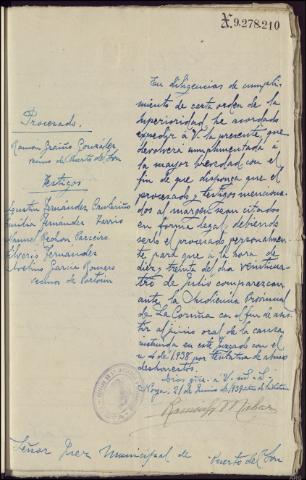 X.9.278.210
Procesado.
Ramon González,
vecino de Puerto de Son
Testigos
Agustin Fernández
Fernández
Manuel
Silverio Fernández
García Romero
vecinos de
En diligencias de cumpli-
miento de carta orden de la
Superioridad, he acordado
expedir á V. la presente, que
devolverá cumplimentada á
la mayor brevedad, con el
fin de que disponga que el
procesado y testigos menciona-
dos al margen sean citados
en forma legal, debiendo
serlo el procesado personalmen-
te para que a la hora de
diez y treinta del dia veinticua-
tro de julio comparezcan
ante la Audiencia Provincial
de La Coruña con el fin de asis-
tir al juicio oral de la causa
instruida en este Juzgado con el
nº 4 de 1938 por tentativa de abusos
deshonestos.
Dios gue. a V. m. a.
Noya, 21 de Junio de 1938
Señor Juez Municipal de Puerto del Son